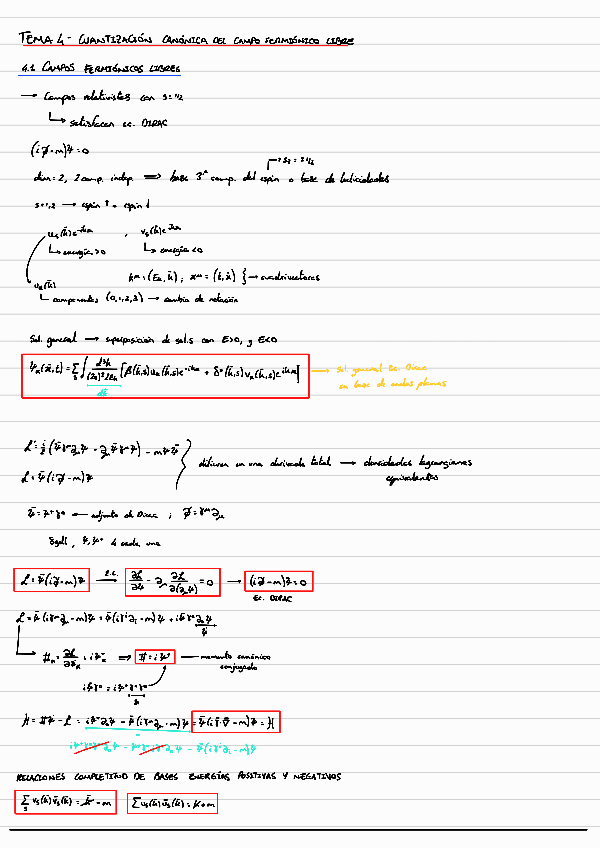 TEMA 4 - CUANTIZACIÓN CANÓNICA DEL CAMPO FERMIÓNICO LIBRE
4.1 CAMPOS FERMIÓNICOS LIBRES
→ Campos relativistas con s=1/2
↳ satisfacen ec. DIRAC
(i∂̸-m)ψ=0
→ S₃ = ±1/2
dim=2, 2 comp. indep ⟹ base 3ª comp. del espín o base de helicidades
s=1,2 → espín ↑ o espín ↓
u_s(k̄)e^{-ikx} , v_s(k̄)e^{ikx}
↳ energía>0 ↳ energía<0
k^μ=(E_k, k̄) ; x^μ=(t,x̄) } → cuadrivectores
u_α(k̄)
↳ componentes (0,1,2,3) → cambio de notación
Sol. general → superposición de sol.s con E>0, y E<0
ψ_α(x̄,t)=∑_s ∫ d³k/(2π)³2E_k [b(k̄,s)u_α(k̄,s)e^{-ikx} + d⁺(k̄,s)v_α(k̄,s)e^{ikx}] → Sol. general Ec. Dirac
en base de ondas planas
dk̃
ℒ'=i/2(ψ̄γ^μ∂_μψ - ∂_μψ̄γ^μψ) - mψ̄ψ
ℒ=ψ̄(i∂̸-m)ψ } difieren en una derivada total → densidades lagrangianas
equivalentes
ψ̄=ψ⁺γ⁰ ← adjunto de Dirac ; ∂̸=γ^μ∂_μ
, ψ,ψ̄ 4 cada una
ℒ=ψ̄(i∂̸-m)ψ → ∂ℒ/∂ψ̄ - ∂_μ ∂ℒ/∂(∂_μψ̄) = 0 → (i∂̸-m)ψ=0
EC. DIRAC
ℒ=ψ̄(iγ^μ∂_μ-m)ψ = ψ̄(iγ^i∂_i-m)ψ + iψ̄γ⁰∂₀ψ
ψ̇
Π_α=∂ℒ/∂ψ̇_α = iψ⁺_α ⟹ Π=iψ⁺ — momento canónico
conjugado
iψ̄γ⁰ = iψ⁺γ⁰γ⁰
ℋ=Πψ̇-ℒ = iψ⁺∂₀ψ - ψ̄(iγ^μ∂_μ-m)ψ = ψ̄(iγ̄·∇̄-m)ψ = ℋ
RELACIONES COMPLETITUD DE BASES ENERGÍAS POSITIVAS Y NEGATIVAS
∑_s v_s(k̄)v̄_s(k̄) = k̸-m ∑u_s(k̄)ū_s(k̄) = k̸+m